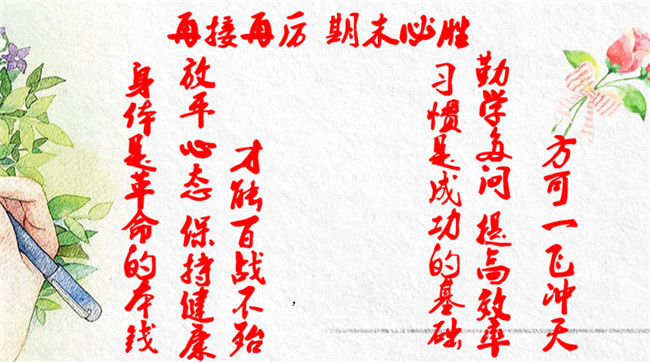 再接再厉 期末必胜
习惯是成功的基础
勤学多问 提高效率
方可一飞冲天
身体是革命的本钱
放平心态 保持健康
才能百战不殆
,